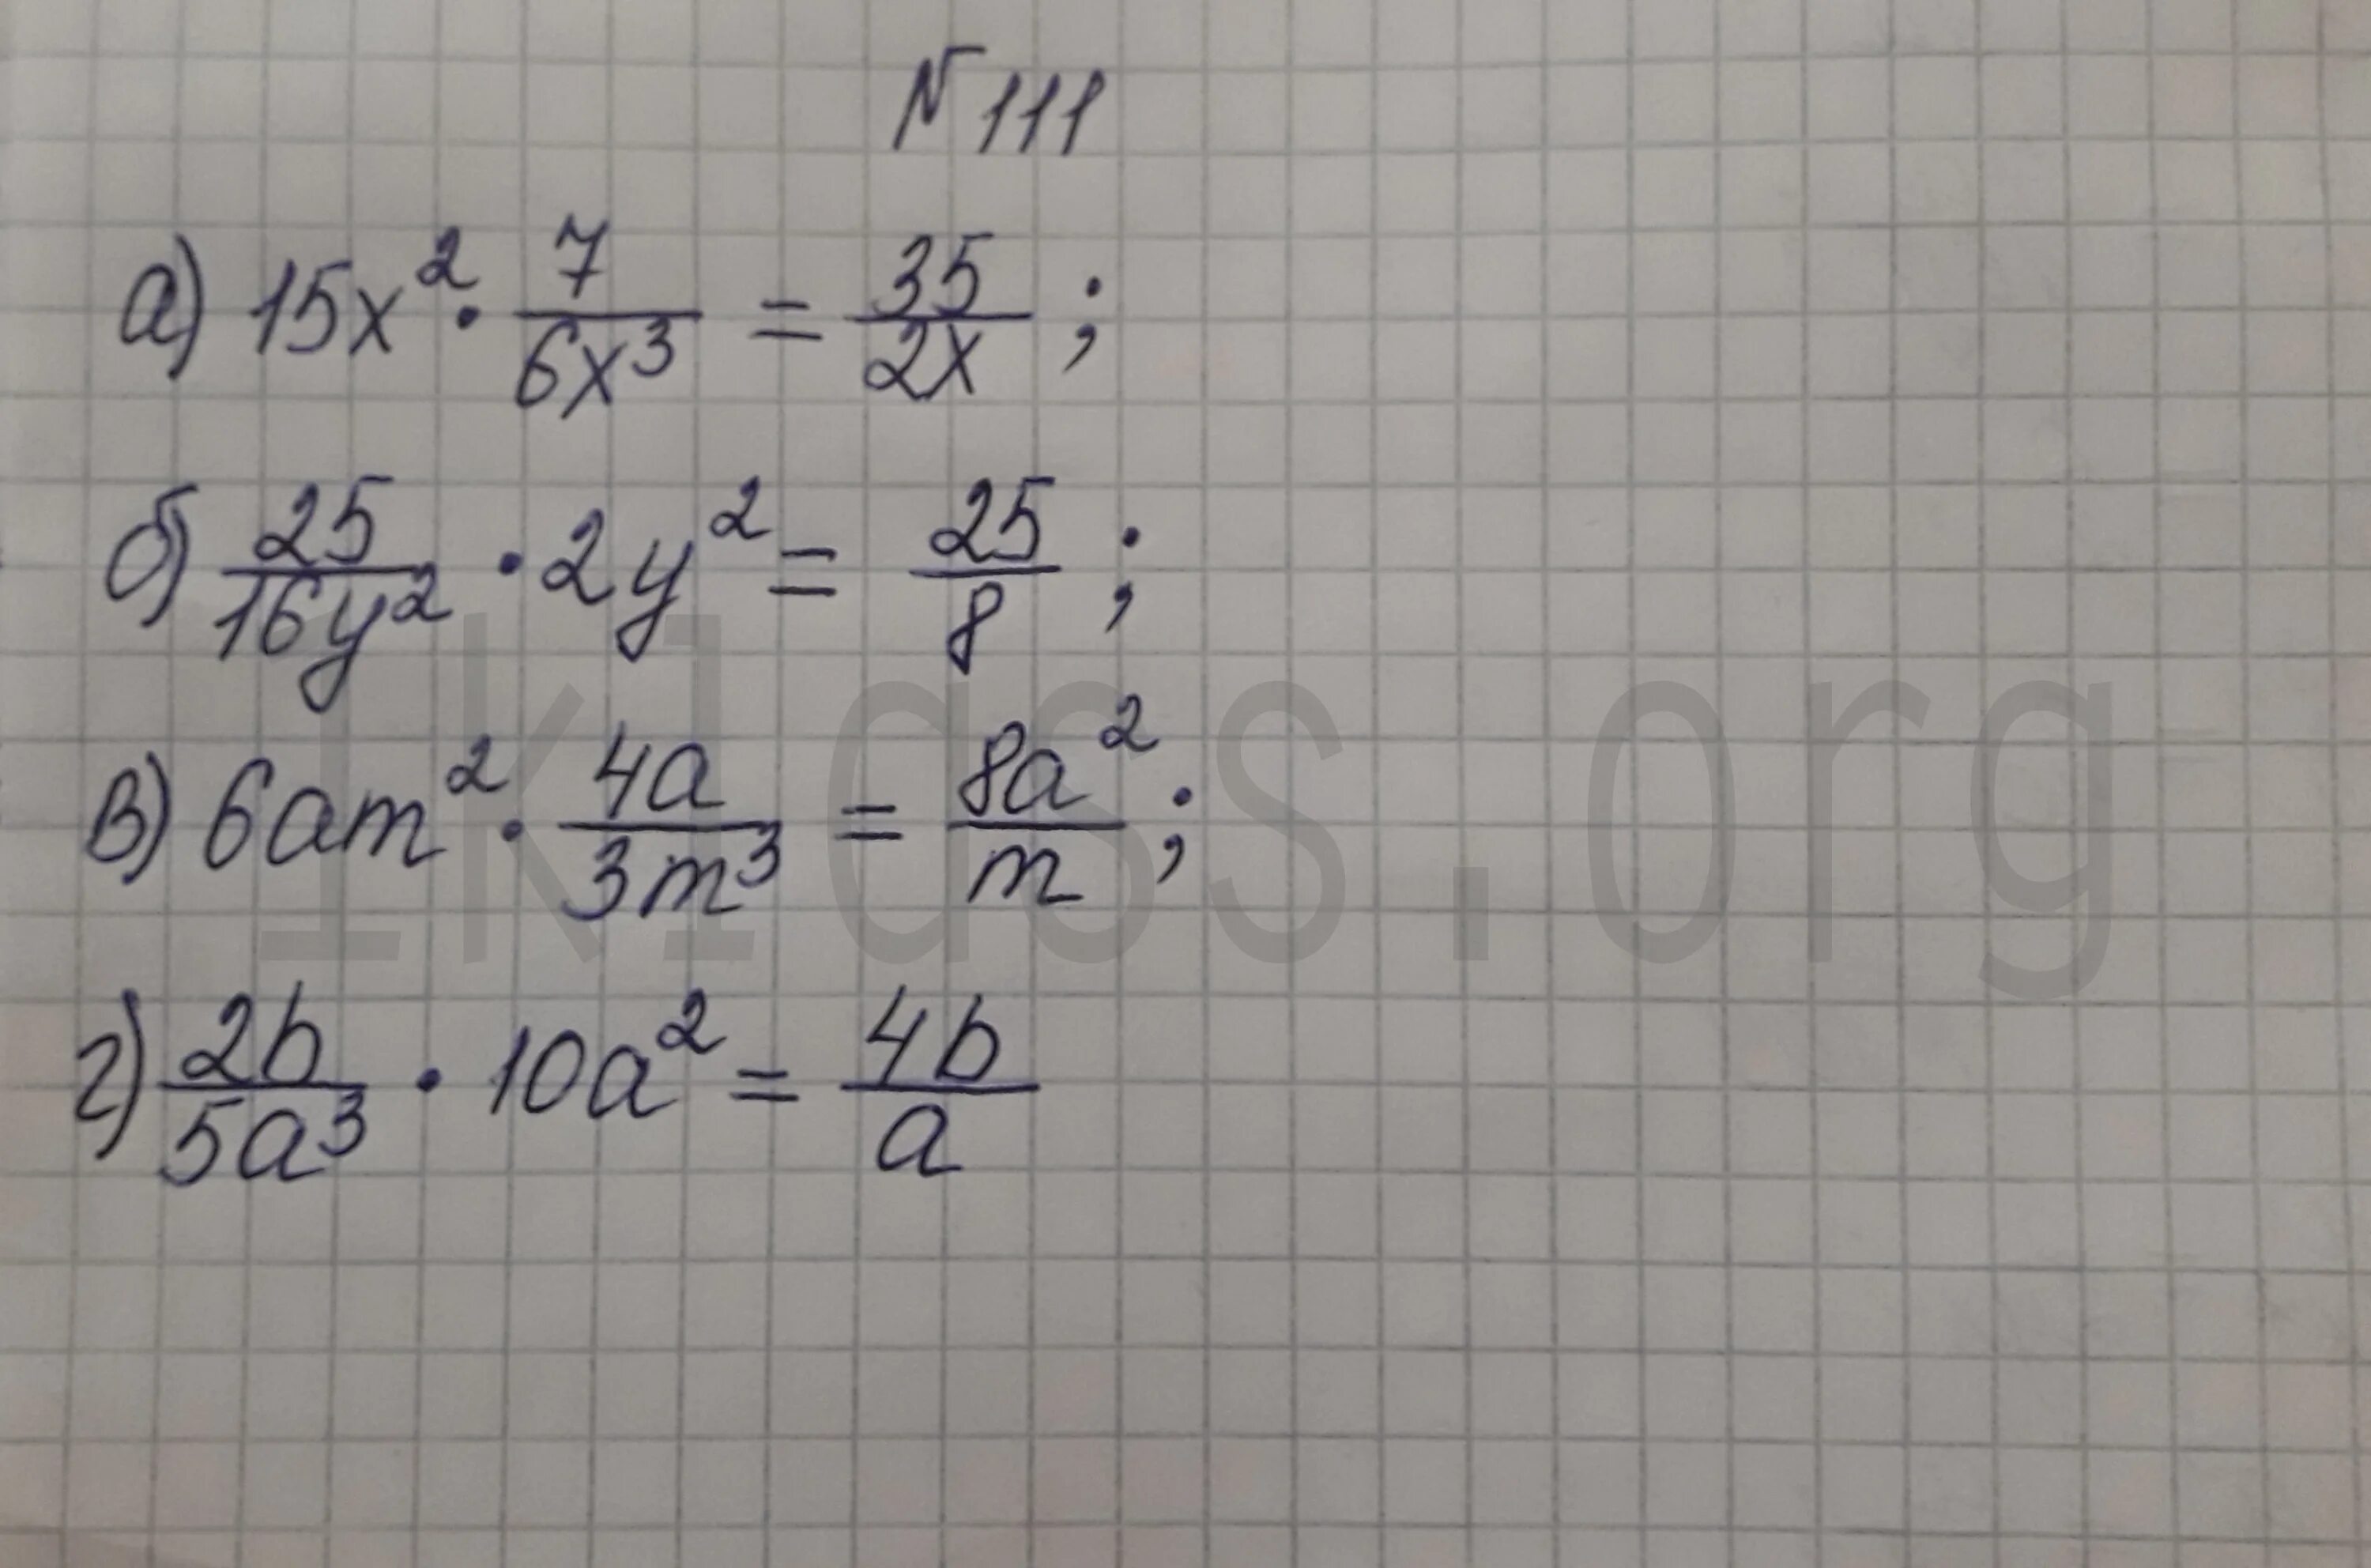 N 111
а) 15x² · 7/6x³ = 35/2x ;
б) 25/16y² · 2y² = 25/8 ;
в) 6am² · 4a/3m³ = 8a²/m ;
г) 2b/5a³ · 10a² = 4b/a
1klass.org